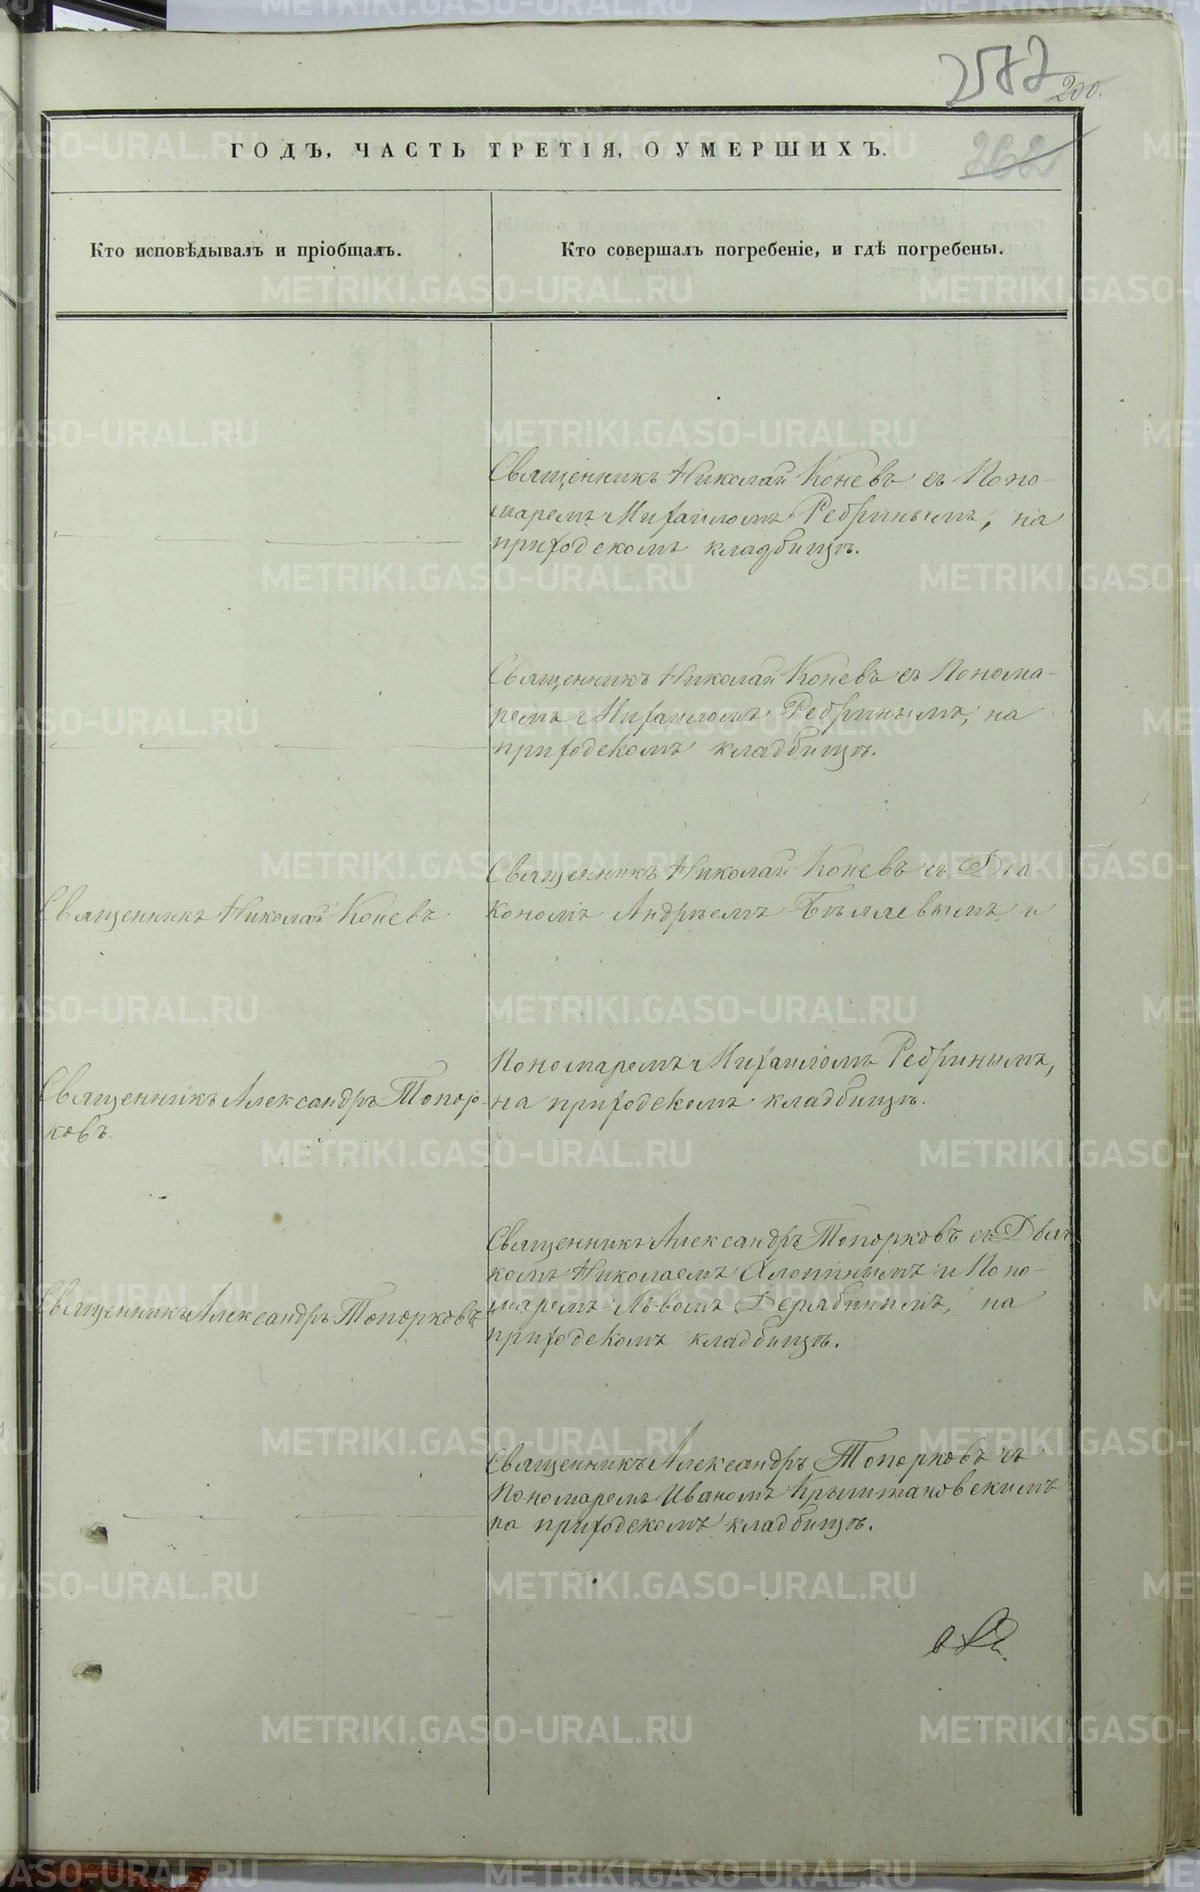 257
200.
262
ГОДЪ, ЧАСТЬ ТРЕТІЯ, О УМЕРШИХЪ.
Кто исповѣдывалъ и пріобщалъ.
Кто совершалъ погребеніе, и гдѣ погребены.
Священникъ Николай Коневъ съ Поно-
маремъ Михаиломъ Ребринымъ, на
приходскомъ кладбищѣ.
Священникъ Николай Коневъ съ Понома-
ремъ Михаиломъ Ребринымъ, на
приходскомъ кладбищѣ.
Священникъ Николай Коневъ
Священникъ Николай Коневъ съ Діа
кономъ Андреемъ Бѣляевымъ и
Священникъ Александръ Топор-
ковъ.
Пономаремъ Михаиломъ Ребринымъ,
на приходскомъ кладбищѣ.
Священникъ Александръ Топорковъ
Священникъ Александръ Топорковъ съ Дьяч
комъ Николаемъ Хлопинымъ и Поно-
маремъ Львомъ Дерябинымъ, на
приходскомъ кладбищѣ.
Священникъ Александръ Топорковъ съ
Пономаремъ Иваномъ Крыштановскимъ
на приходскомъ кладбищѣ.
METRIKI.GASO-URAL.RU